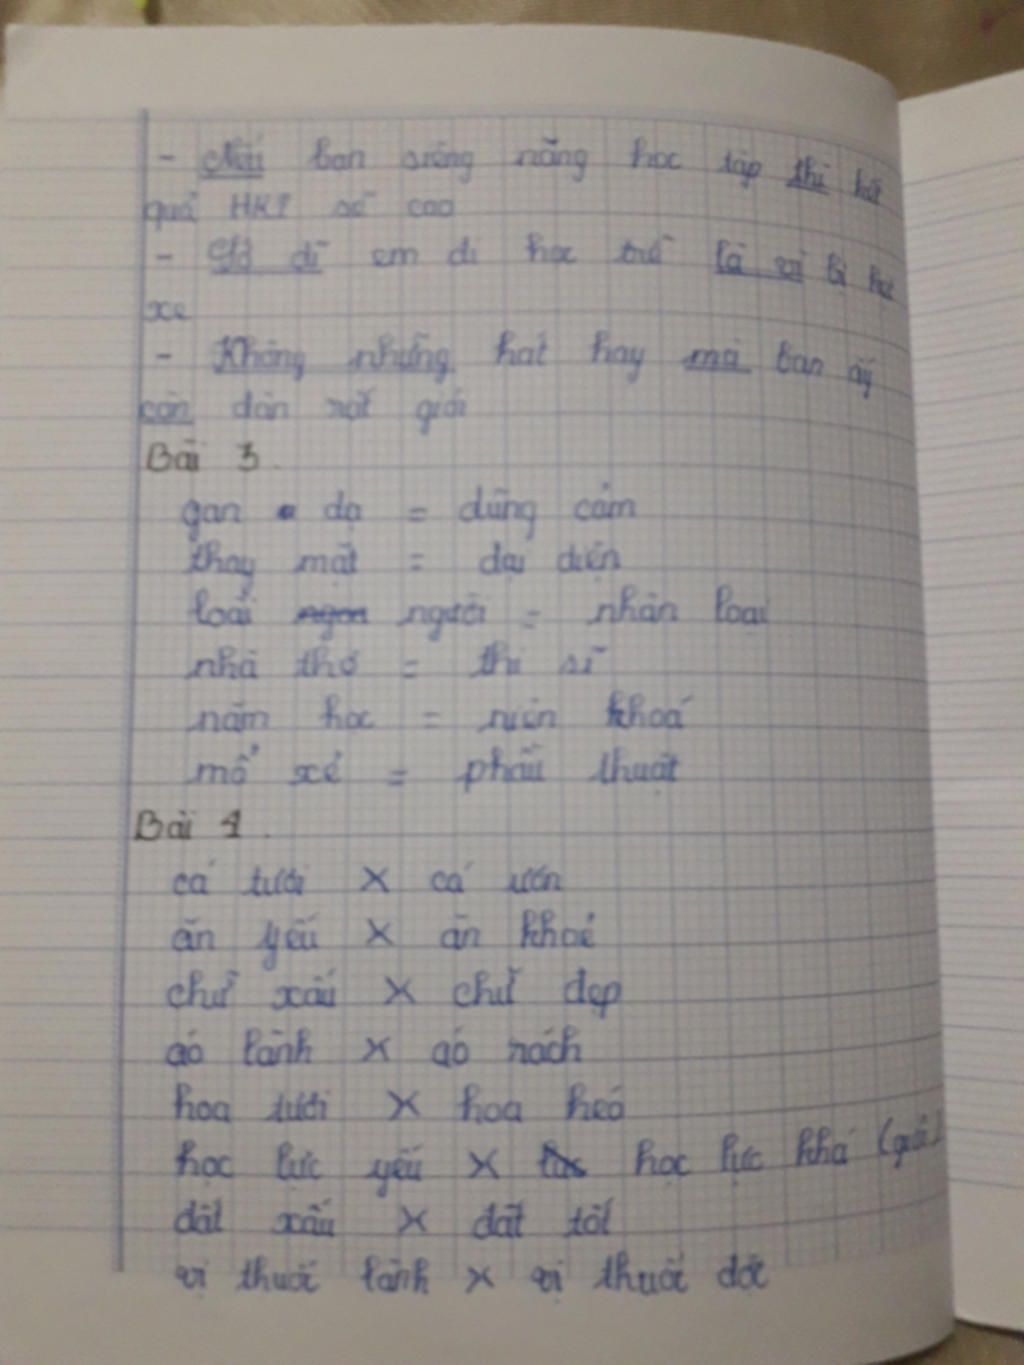 - Nếu bạn siêng năng học tập thì kết
quả HKI sẽ cao
- Sở dĩ em đi học trễ là vì bị hư
xe
- Không những hát hay mà bạn ấy
còn đàn rất giỏi
Bài 3.
gan dạ = dũng cảm
thay mặt = đại diện
loài người = nhân loại
nhà thơ = thi sĩ
năm học = niên khoá
mổ xẻ = phẫu thuật
Bài 4.
cá tươi X cá ươn
ăn yếu X ăn khoẻ
chữ xấu X chữ đẹp
áo lành X áo rách
hoa tươi X hoa héo
học lực yếu X học lực khá (giỏi)
đất xấu X đất tốt
vị thuốc lành X vị thuốc độc